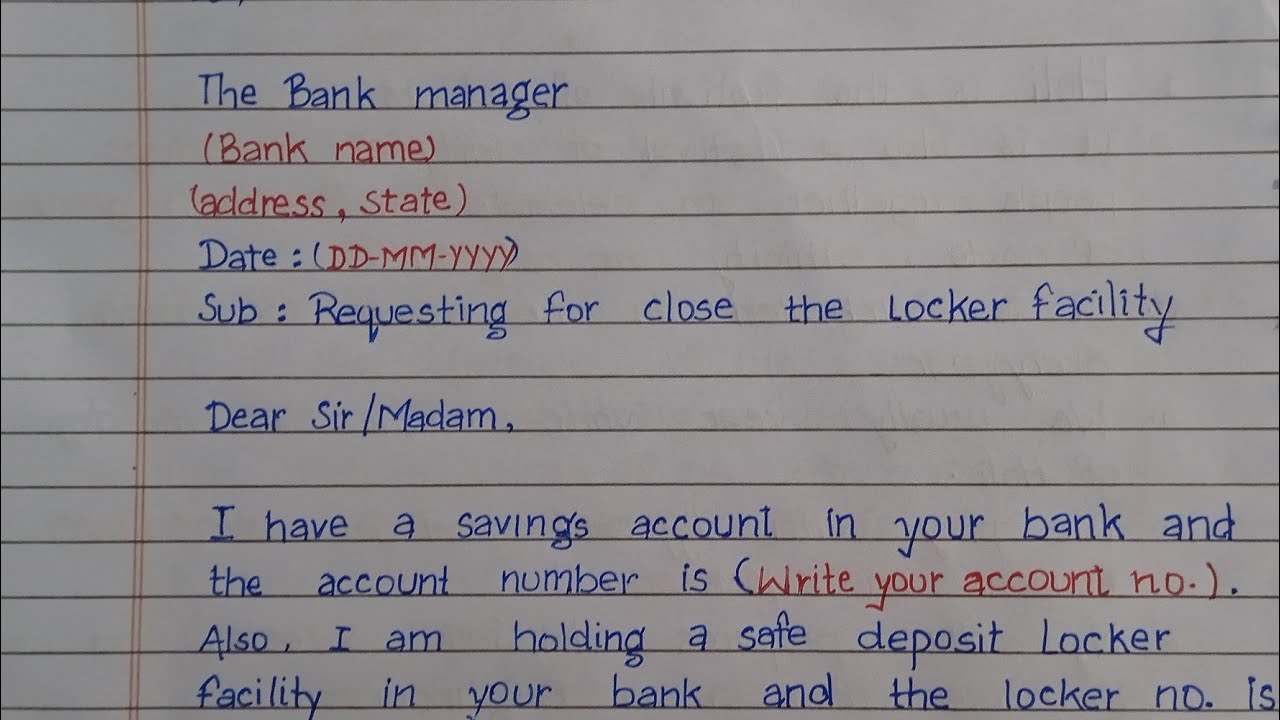 The Bank manager
(Bank name)
(address, state)
Date : (DD-MM-YYYY)
Sub : Requesting for close the Locker facility
Dear Sir/Madam,
I have a savings account in your bank and
the account number is (Write your account no.).
Also, I am holding a safe deposit Locker
facility in your bank and the locker no. is